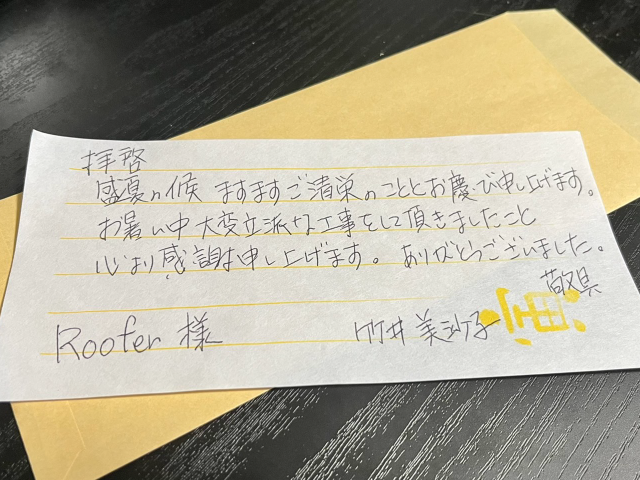 拝啓
盛夏の候 ますますご清栄のこととお慶び申し上げます。
お暑い中大変立派な工事をして頂きましたこと
心より感謝申し上げます。ありがとうございました。
敬具
Roofer 様
竹井 美沙子